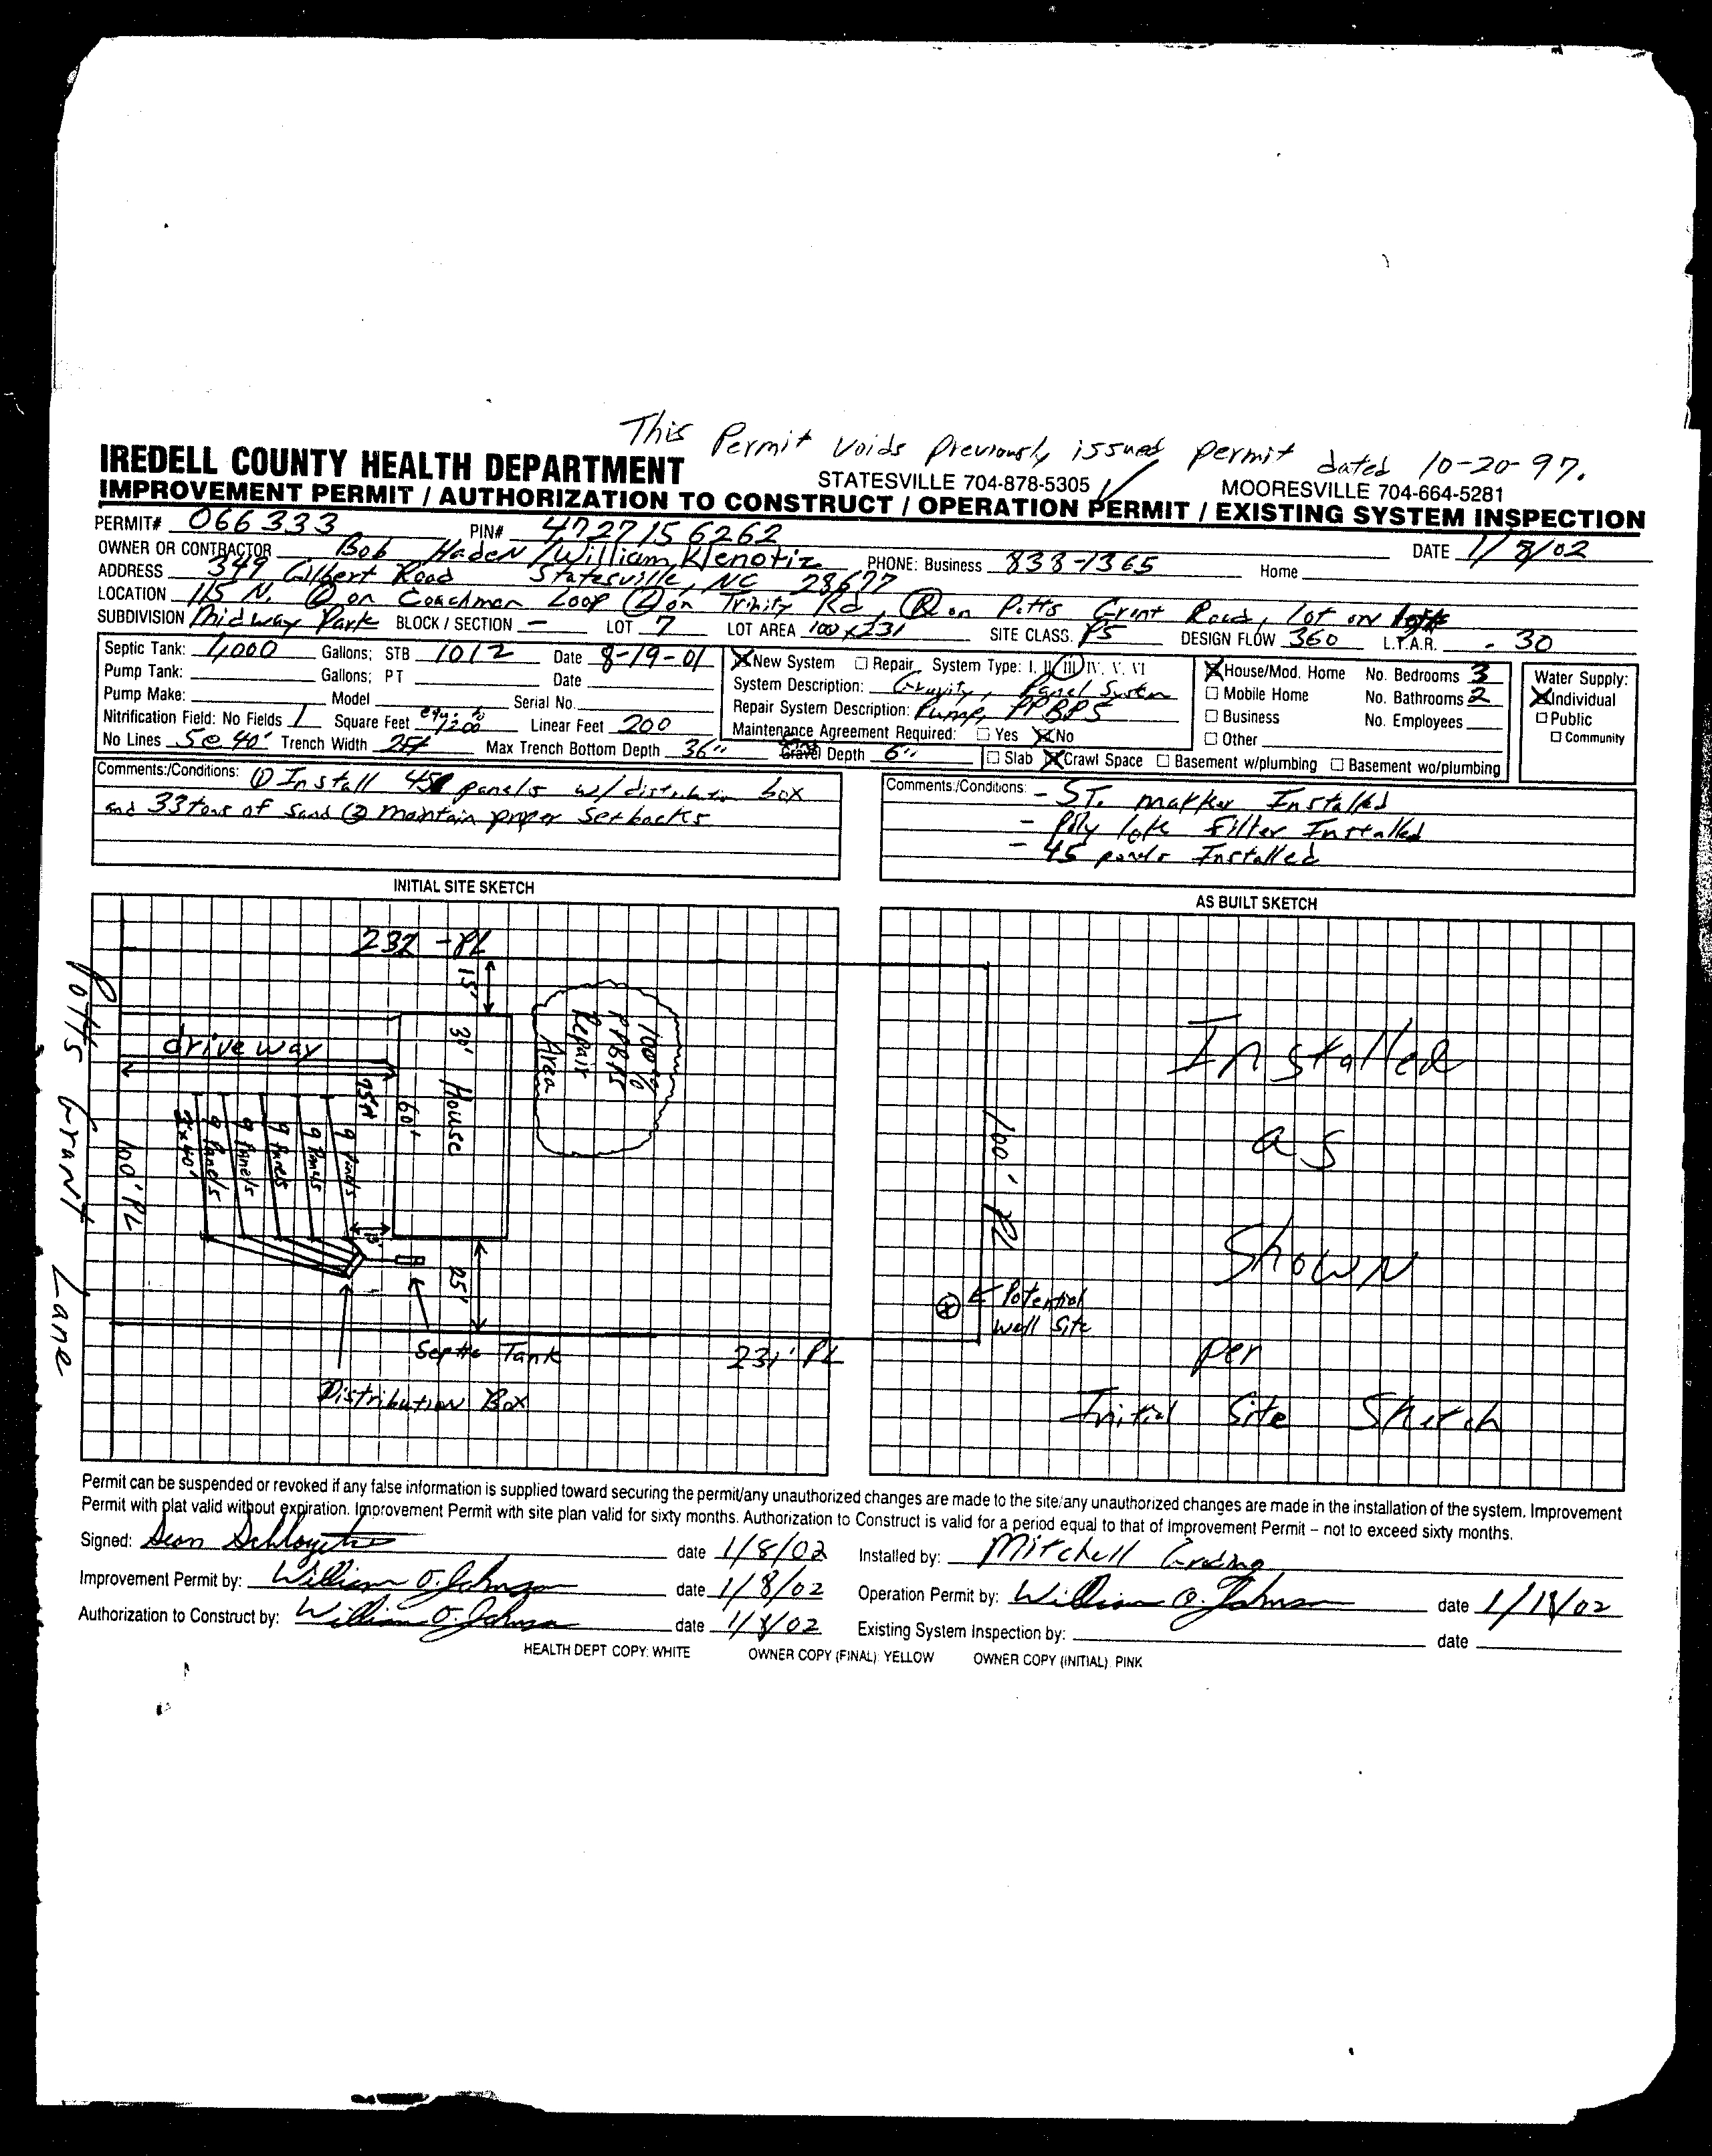 This Permit voids previously issued permit dated 10-20-97.
IREDELL COUNTY HEALTH DEPARTMENT
STATESVILLE 704-878-5305 MOORESVILLE 704-664-5281
IMPROVEMENT PERMIT / AUTHORIZATION TO CONSTRUCT / OPERATION PERMIT / EXISTING SYSTEM INSPECTION
PERMIT# 066333 PIN# 4727156262 DATE 1/8/02
OWNER OR CONTRACTOR Bob Haden / William PHONE: Business 838-1365 Home
ADDRESS 349 Gilbert Road Statesville, NC 28677
LOCATION 115 N. on Coachman Loop on Trinity Rd, (R) on Potts Grant Road, lot on
SUBDIVISION Midway Park BLOCK / SECTION - LOT 7 LOT AREA 100 x 231 SITE CLASS. PS DESIGN FLOW 360 L.T.A.R. .30
Septic Tank: 1,000 Gallons; STB 1012 Date 8-19-01
Pump Tank: Gallons; PT Date
Pump Make: Model Serial No.
Nitrification Field: No Fields 1 Square Feet 1200 Linear Feet 200
No Lines 5@40' Trench Width 2ft Max Trench Bottom Depth 36" Gravel Depth 6"
New System Repair System Type: I, II, III, IV, V, VI
System Description: Gravity, Panel System
Repair System Description: Pump, PPBPS
Maintenance Agreement Required: Yes No
Slab Crawl Space Basement w/plumbing Basement wo/plumbing
House/Mod. Home No. Bedrooms 3
Mobile Home No. Bathrooms 2
Business No. Employees
Other
Water Supply:
Individual
Public
Community
Comments:/Conditions: (1) Install 45 panels w/ distribution box
and 33 tons of sand (2) maintain proper setbacks
Comments:/Conditions: - ST. marker Installed
- Poly lok filter Installed
- 45 panels Installed
INITIAL SITE SKETCH
232 - PL
15'
30'
House
60'
100%
PPBPS
Repair
Area
driveway
75ft
9 Panels
9 Panels
9 Panels
9 Panels
9 Panels
100' PL
Potts Grant Lane
25'
Septic Tank
Distribution Box
231' PL
AS BUILT SKETCH
100' PL
Potential
Well Site
Installed
as
Shown
per
Initial Site Sketch
Permit can be suspended or revoked if any false information is supplied toward securing the permit/any unauthorized changes are made to the site/any unauthorized changes are made in the installation of the system. Improvement
Permit with plat valid without expiration. Improvement Permit with site plan valid for sixty months. Authorization to Construct is valid for a period equal to that of Improvement Permit – not to exceed sixty months.
Signed: date 1/8/02 Installed by: Mitchell Grading
Improvement Permit by: William O. Johnson date 1/8/02 Operation Permit by: William O. Johnson date 1/18/02
Authorization to Construct by: William O. Johnson date 1/8/02 Existing System Inspection by: date
HEALTH DEPT COPY: WHITE OWNER COPY (FINAL): YELLOW OWNER COPY (INITIAL): PINK